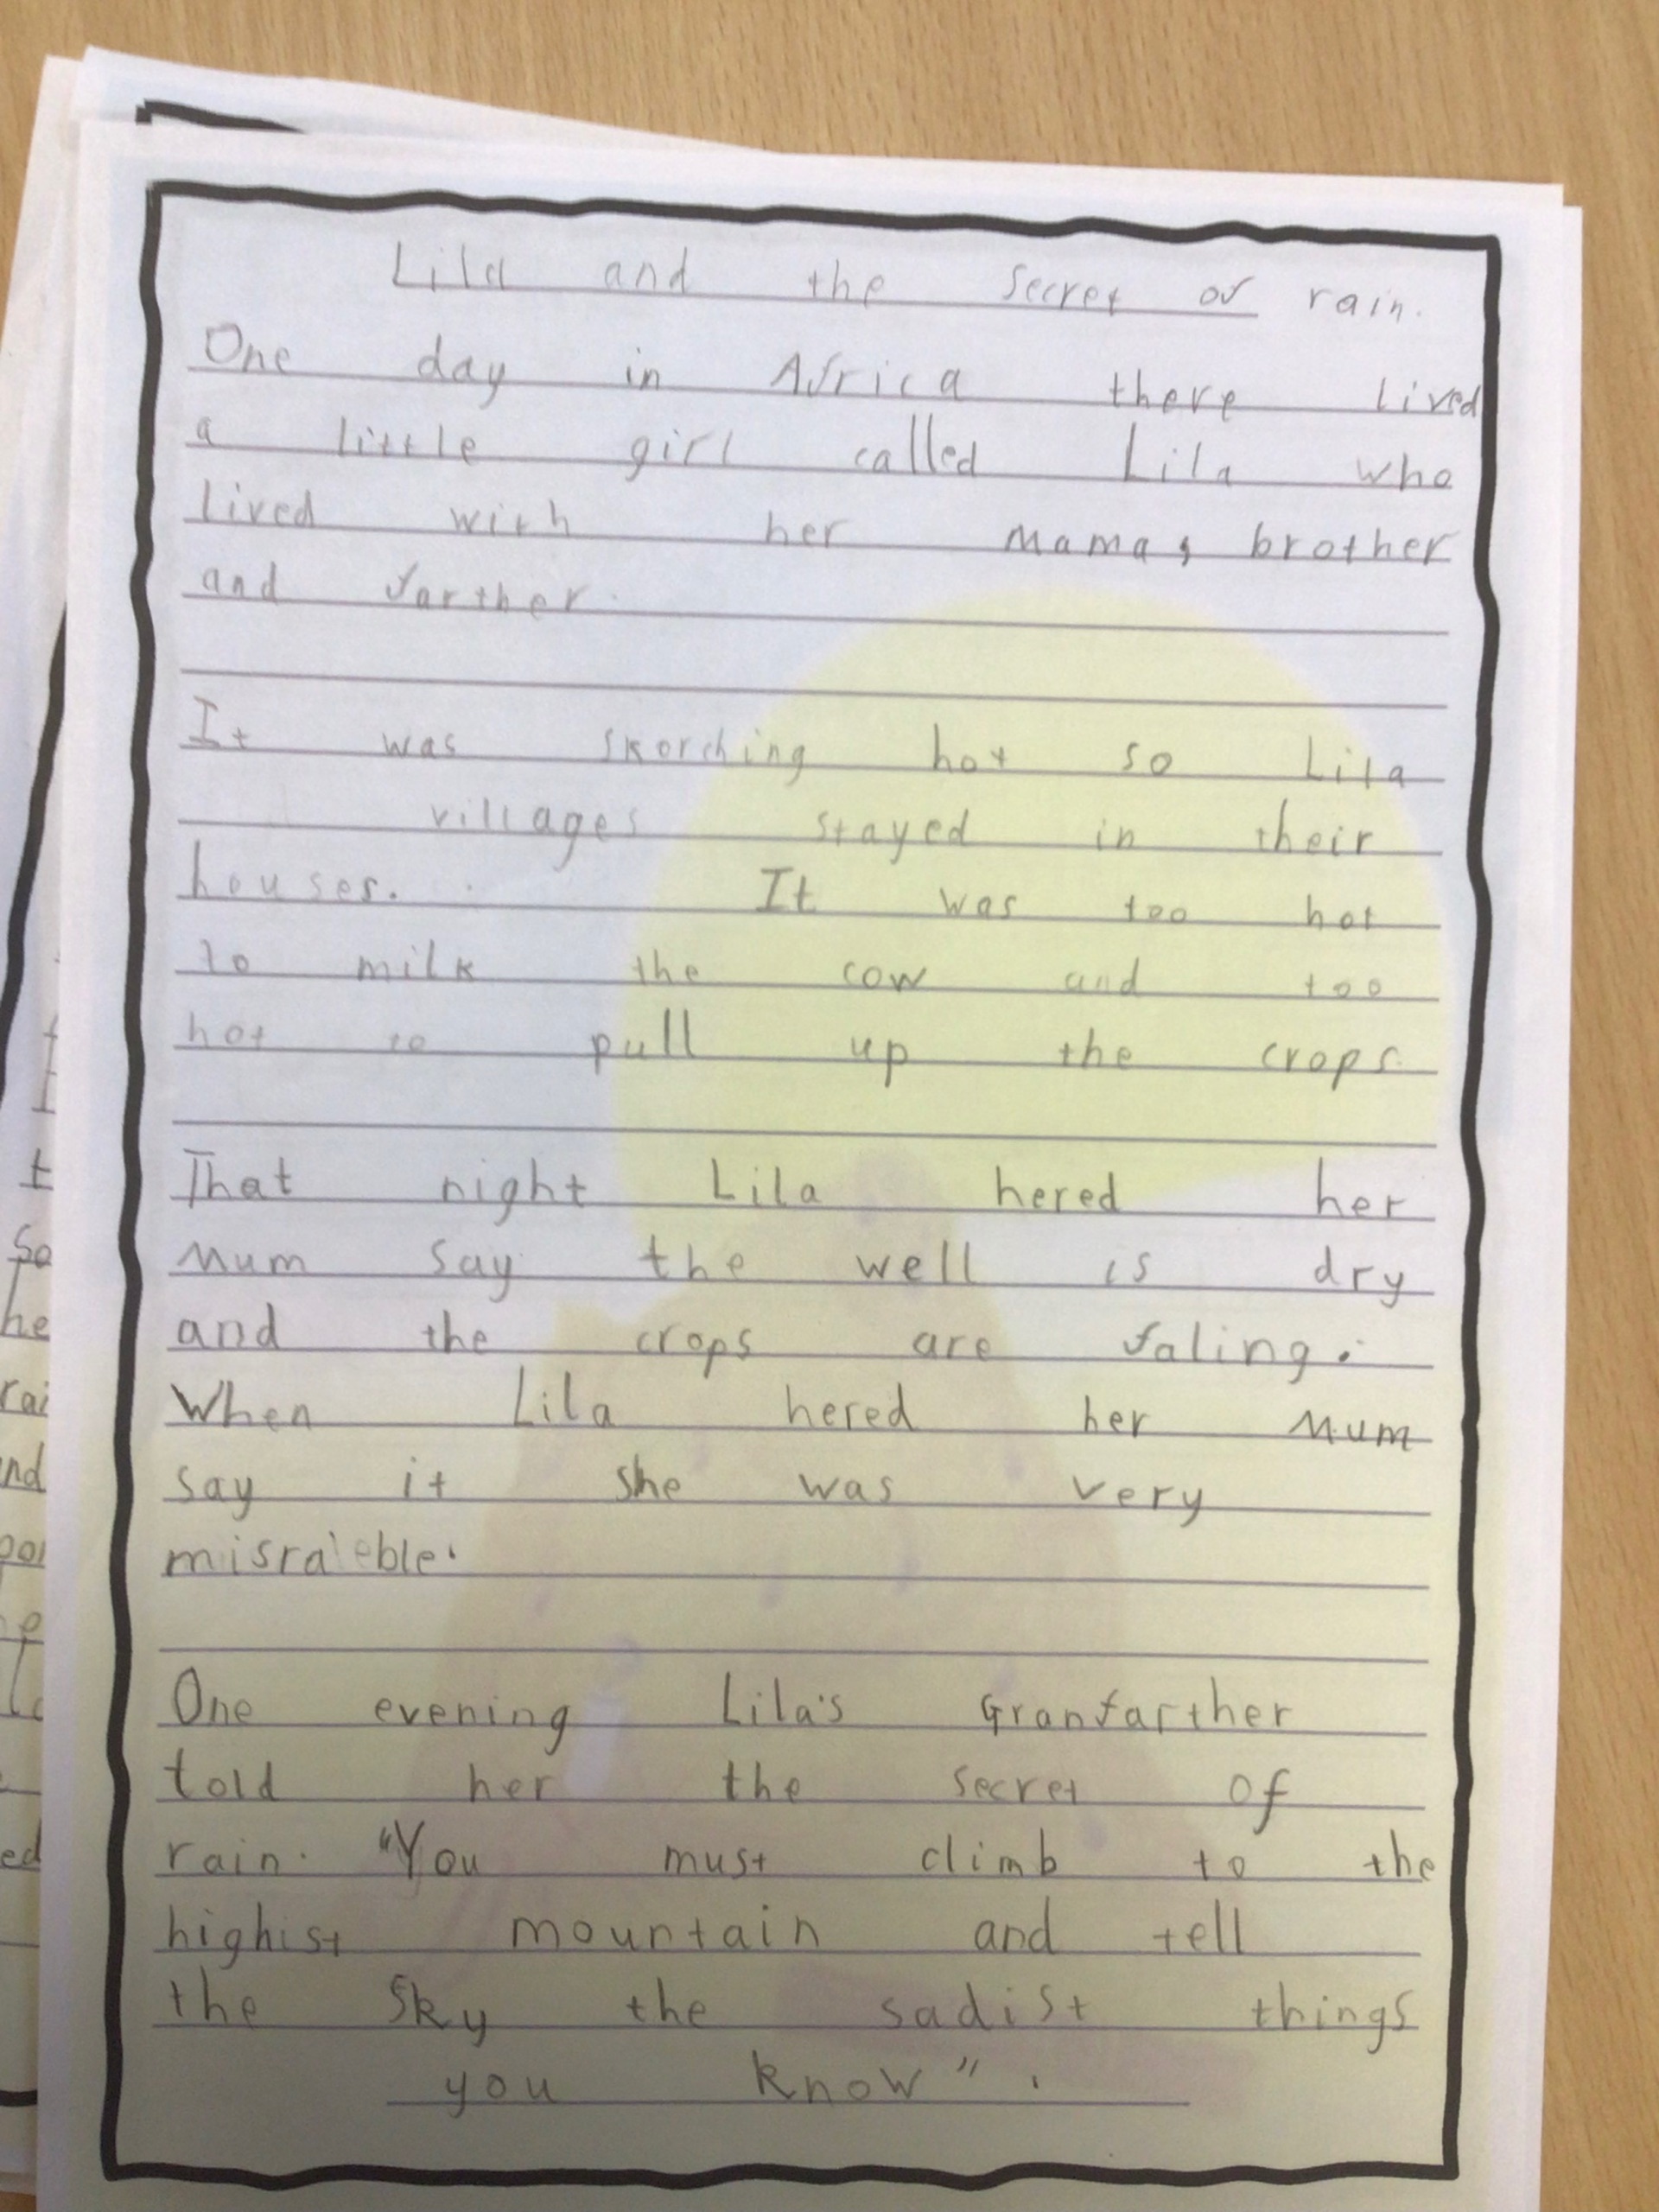 Lila and the secret of rain.
One day in Africa there lived
a little girl called Lila who
lived with her mama, brother
and farther.
It was skorching hot so Lila
villages stayed in their
houses. It was too hot
to milk the cow and too
hot to pull up the crops.
That night Lila hered her
mum say the well is dry
and the crops are faling.
When Lila hered her mum
say it she was very
misraleble.
One evening Lila's Granfarther
told her the secret of
rain. "You must climb to the
highist mountain and tell
the sky the sadist things
you know".